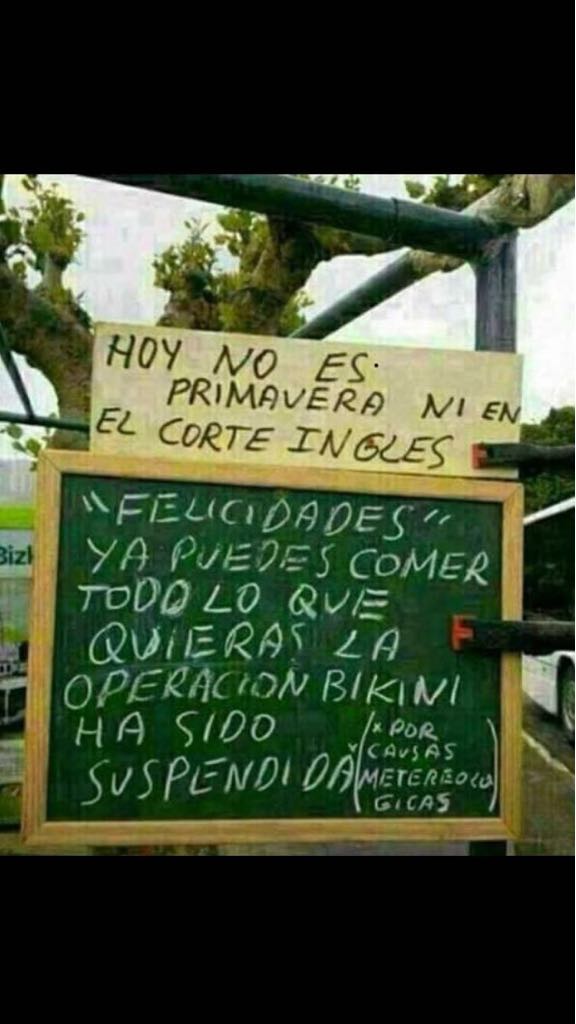 HOY NO ES
PRIMAVERA NI EN
EL CORTE INGLES
"FELICIDADES"
YA PUEDES COMER
TODO LO QUE
QUIERAS LA
OPERACION BIKINI
HA SIDO
SUSPENDIDA*
(*POR
CAUSAS
METEREOLO
GICAS)
Bizk